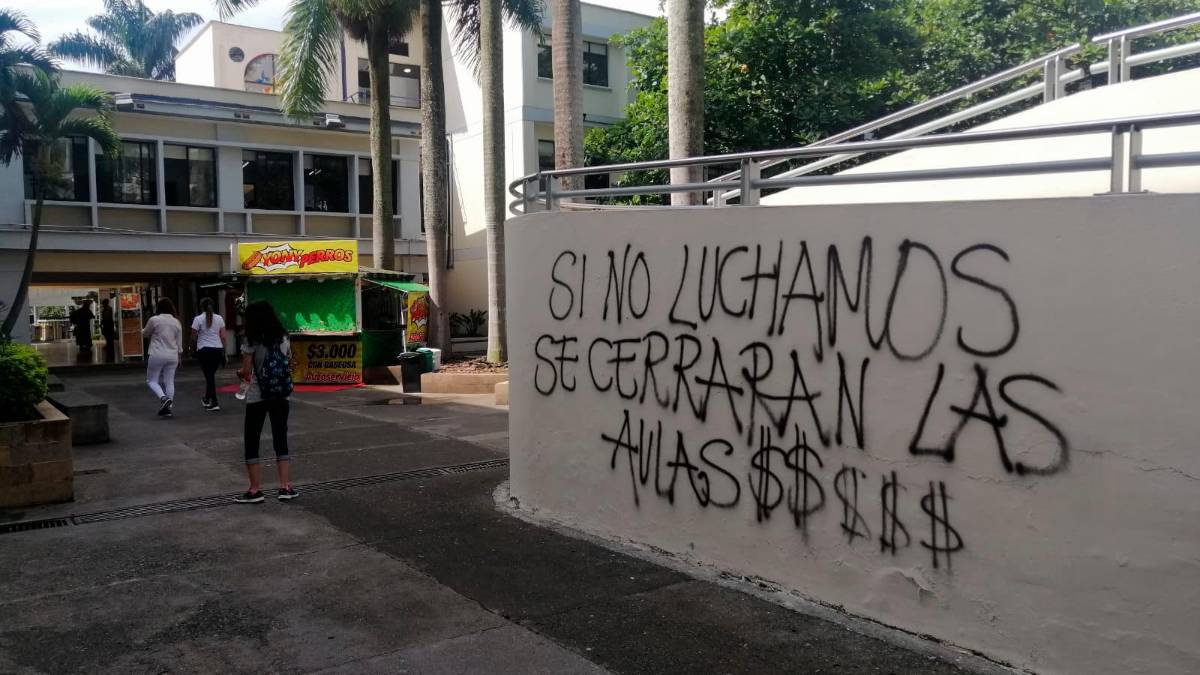 YONY PERROS
$3.000
CON GASEOSA
Autoservicio
SI NO LUCHAMOS
SE CERRARAN LAS
AULAS $$$$$